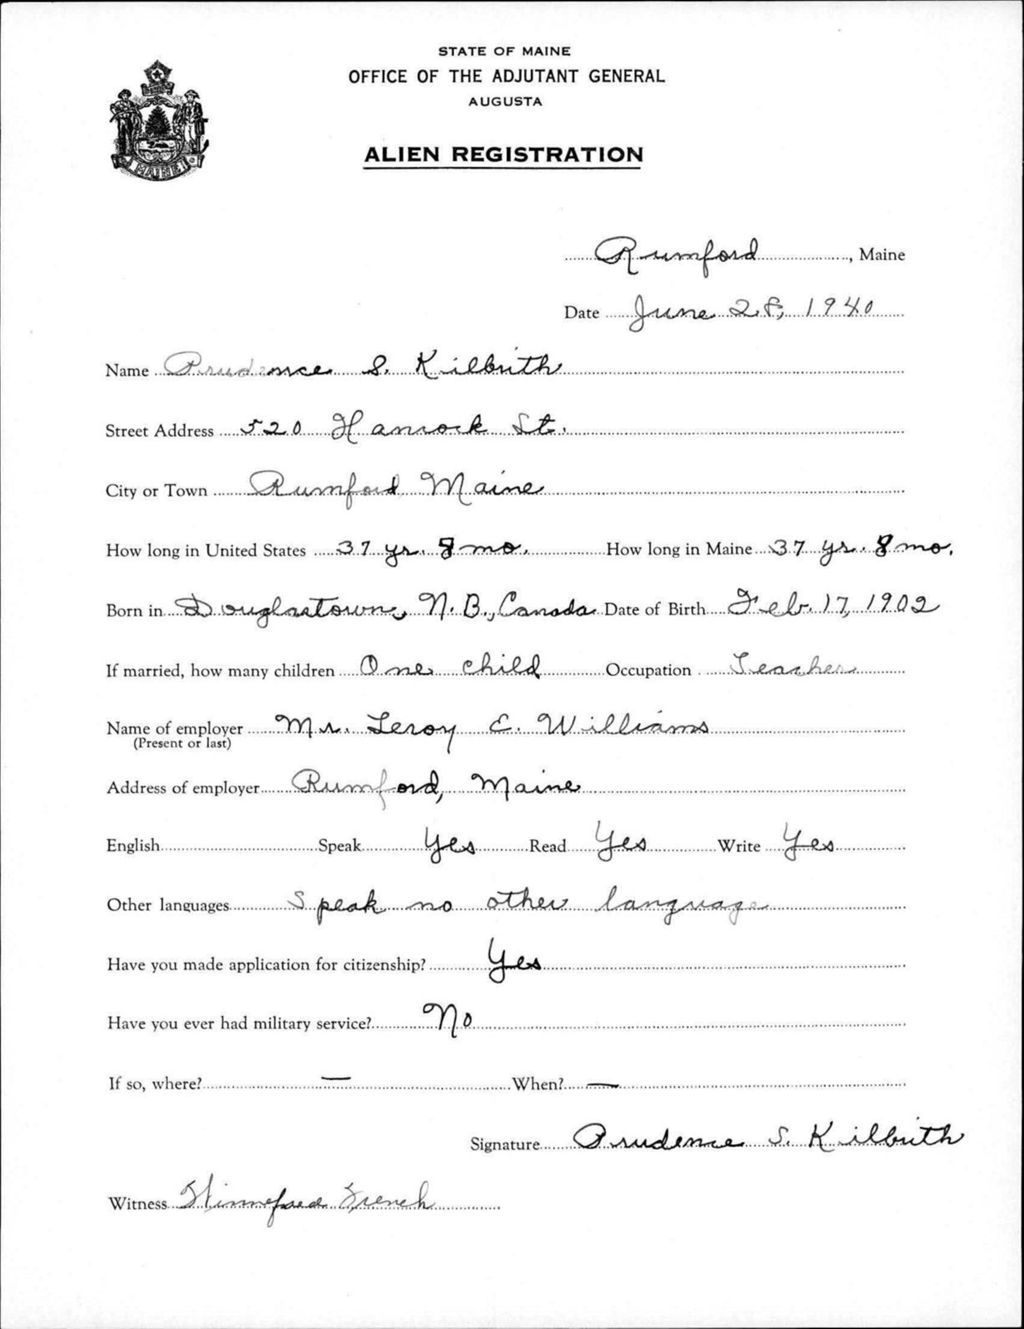 STATE OF MAINE
OFFICE OF THE ADJUTANT GENERAL
AUGUSTA
ALIEN REGISTRATION
MAINE
Rumford, Maine
Date June 28, 1940
Name Prudence S. Kilbrith
Street Address 520 Hancock St.
City or Town Rumford Maine
How long in United States 37 yr. 8 mo. How long in Maine 37 yr. 8 mo.
Born in Douglastown, N.B., Canada Date of Birth Feb. 17, 1902
If married, how many children One child Occupation Teacher
Name of employer Mr. Leroy E. Williams
(Present or last)
Address of employer Rumford, Maine
English Speak Yes Read Yes Write Yes
Other languages Speak no other language
Have you made application for citizenship? Yes
Have you ever had military service? No
If so, where? — When? —
Signature Prudence S. Kilbrith
Witness Winnefred French